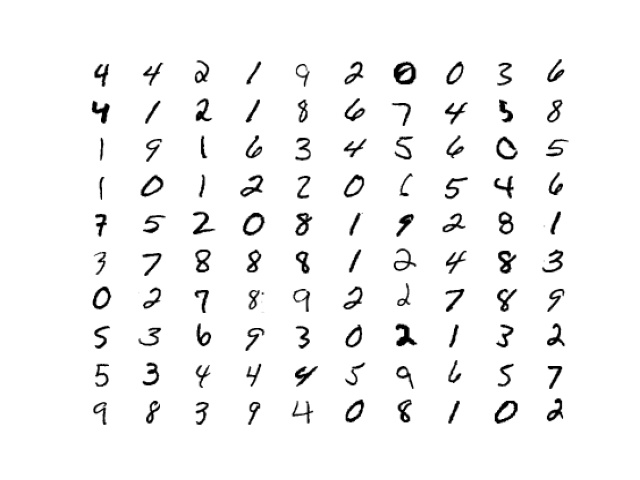 4 4 2 1 9 2 0 0 3 6
4 1 2 1 8 6 7 4 5 8
1 9 1 6 3 4 5 6 0 5
1 0 1 2 2 0 6 5 4 6
7 5 2 0 8 1 9 2 8 1
3 7 8 8 8 1 2 4 8 3
0 2 7 8 9 2 2 7 8 9
5 3 6 9 3 0 2 1 3 2
5 3 4 4 4 5 9 6 5 7
9 8 3 9 4 0 8 1 0 2